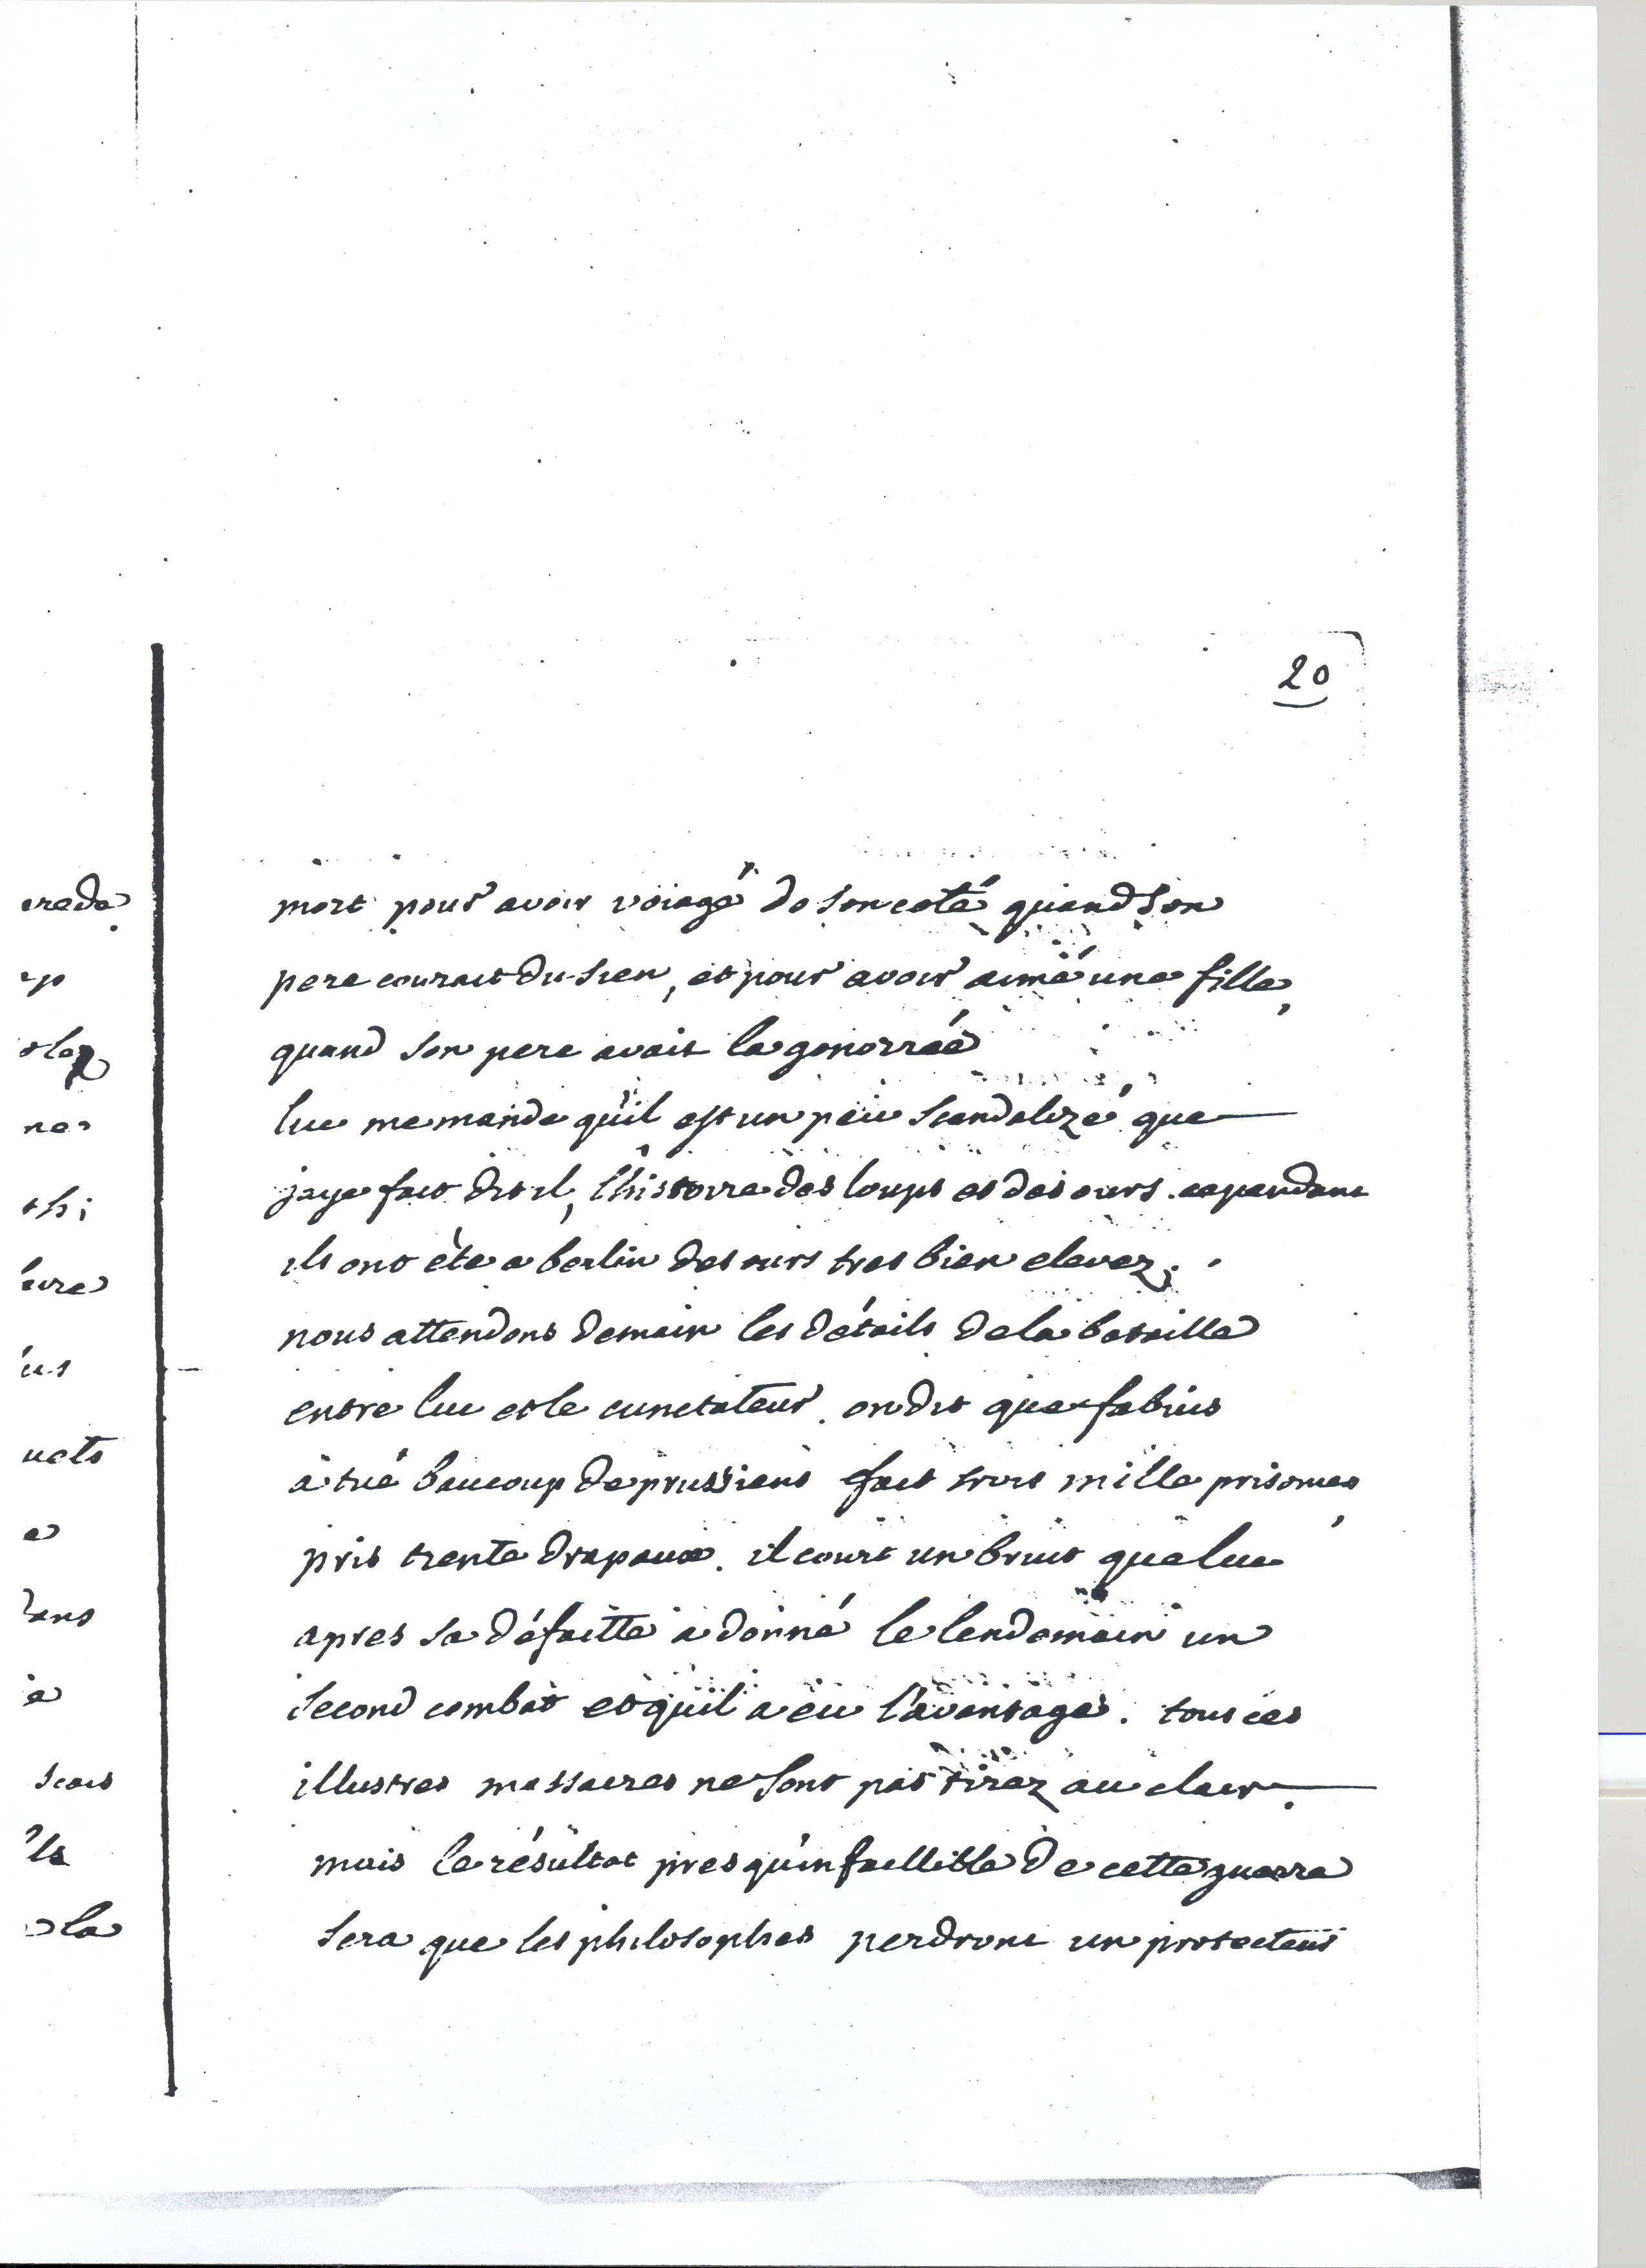 20
mort pour avoir voiagé de son coté quand son
pere courait du sien, et pour avoir aimé une fille,
quand son pere avait la gonorrée
luc me mande qu'il est un peu scandalizé que
jaye fait dit il, l'histoire des loups et des ours. cependant
ils ont été a berlin des ours tres bien elevez.
nous attendons demain les détails de la bataille
entre luc et le cunctateur. on dit que fabius
a tué baucoup de prussiens fait trois mille prisoniers,
pris trente drapaux. il court un bruit que luc
apres sa défaitte a donné le lendemain un
second combat et qu'il a eu l'avantage. tous ces
illustres massacres ne sont pas tirez au clair.
mais le résultat presqu'infaillible de cette guerre
sera que les philosophes perdront un protecteur